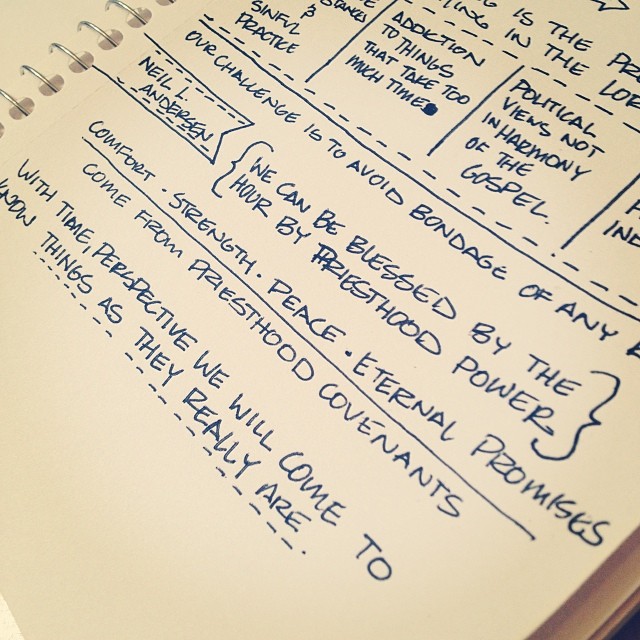 SINFUL &
PRACTICE
ADDICTION
TO THINGS
THAT TAKE TOO
MUCH TIME
IS THE
IN THE
POLITICAL
VIEWS NOT
IN HARMONY
OF THE
GOSPEL.
OUR CHALLENGE IS TO AVOID BONDAGE OF ANY
NEIL L.
ANDERSEN
WE CAN BE BLESSED BY THE
HOUR BY PRIESTHOOD POWER
COMFORT. STRENGTH. PEACE. ETERNAL PROMISES
COME FROM PRIESTHOOD COVENANTS
WITH TIME, PERSPECTIVE WE WILL COME TO
KNOW THINGS AS THEY REALLY ARE.